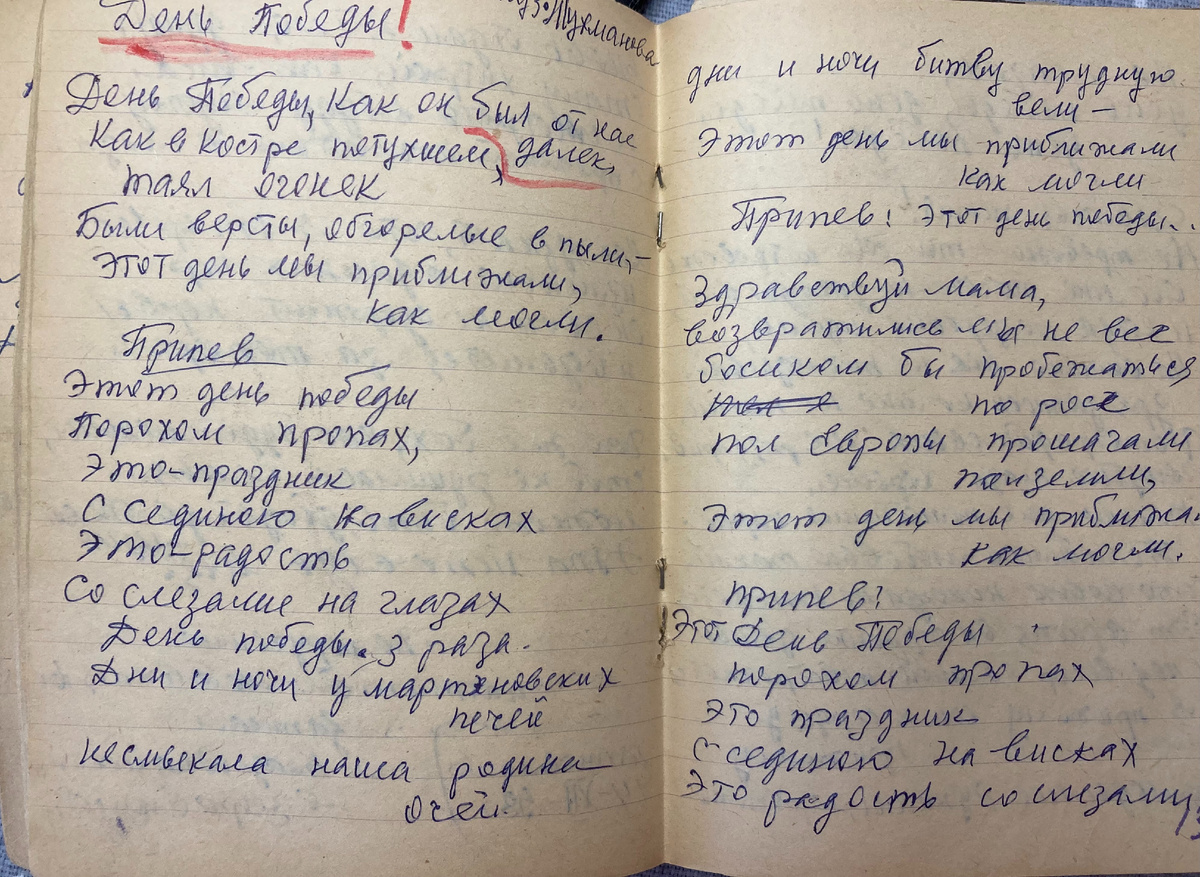 День Победы!
муз. Тухманова
День Победы, как он был от нас
далек,
Как в костре потухшем,
таял огонек
Были версты, обгорелые в пыли –
Этот день мы приближали,
как могли.
Припев
Этот день победы
Порохом пропах,
Это-праздник
С сединою на висках
Это-радость
Со слезами на глазах
День победы. 3 раза.
Дни и ночи у мартеновских
печей
не смыкала наша родина
очей.
дни и ночи битву трудную
вели –
Этот день мы приближали
как могли
Припев: Этот день победы..
Здравствуй мама,
возвратились мы не все
босиком бы пробежаться
по росе
пол Европы прошагали
пол земли,
Этот день мы приближа
как могли.
припев:
Этот День Победы
порохом пропах
это праздник
С сединою на висках
Это радость со слезами